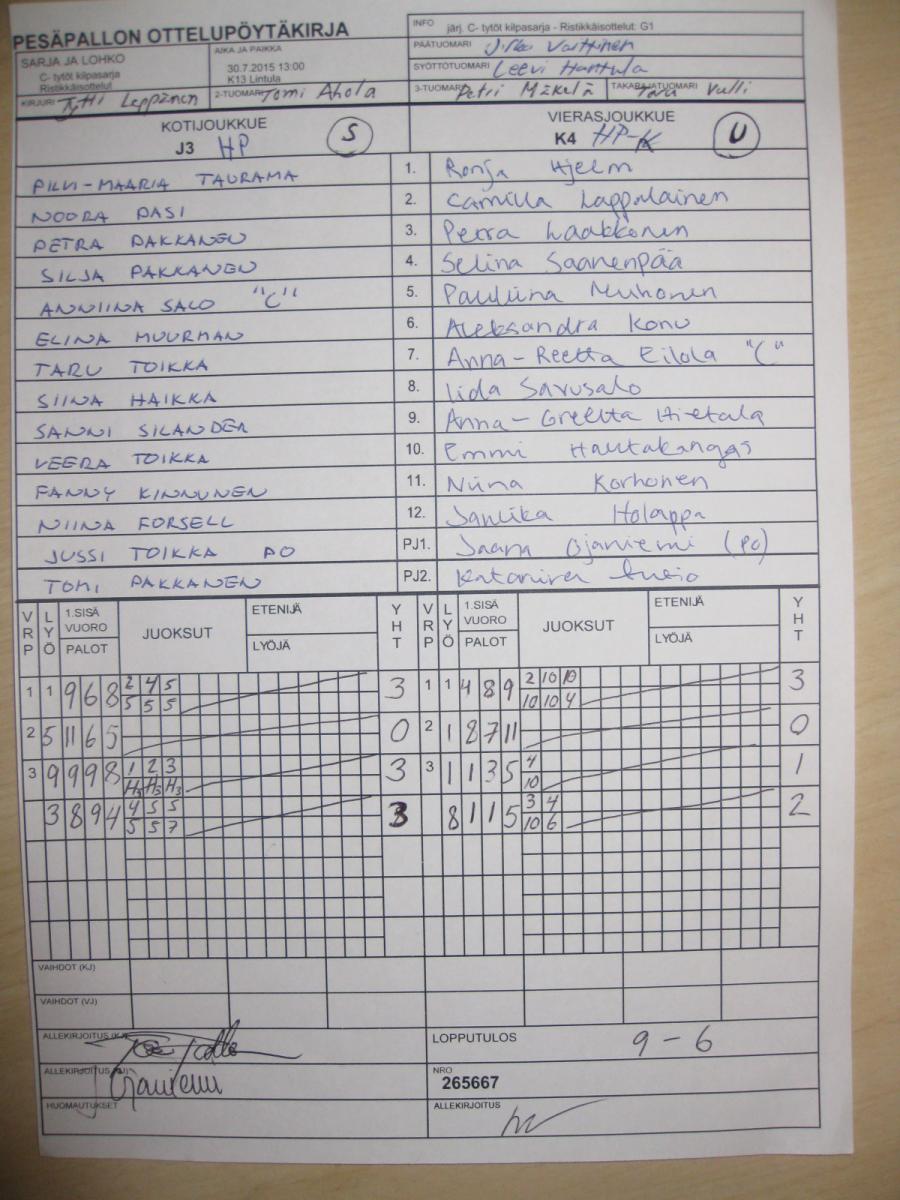 PESÄPALLON OTTELUPÖYTÄKIRJA
INFO järj. C- tytöt kilpasarja - Ristikkäisottelut: G1
SARJA JA LOHKO
C- tytöt kilpasarja
Ristikkäisottelut
AIKA JA PAIKKA
30.7.2015 13:00
K13 Lintula
PÄÄTUOMARI Vartiinen
SYÖTTÖTUOMARI Leevi Hanttula
KIRJURI Tytti Leppänen 2-TUOMARI Tomi Ahola 3-TUOMARI Petri Mäkelä TAKARAJATUOMARI Taru Vulli
KOTIJOUKKUE
J3 HP S
VIERASJOUKKUE
K4 HP-K U
PILVI-MAARIA TAURAMA 1. Ronja Hjelm
NOORA PASI 2. Camilla Lappalainen
PETRA PAKKANEN 3. Petra Laakkonen
SILJA PAKKANEN 4. Selina Saanenpää
ANNIINA SALO "C" 5. Pauliina Muhonen
ELINA MUURMAN 6. Aleksandra Konu
TARU TOIKKA 7. Anna-Reetta Eilola "C"
SIINA HAIKKA 8. Iida Savusalo
SANNI SILANDER 9. Anna-Greetta Hietala
VEERA TOIKKA 10. Emmi Hautakangas
FANNY KINNUNEN 11. Niina Korhonen
NIINA FORSELL 12. Janika Holappa
JUSSI TOIKKA PO PJ1. Jaana Ojaniemi (PO)
TOMI PAKKANEN PJ2. Katariina
VRP LYÖ 1.SISÄ VUORO PALOT JUOKSUT ETENIJÄ LYÖJÄ YHT VRP LYÖ 1.SISÄ VUORO PALOT JUOKSUT ETENIJÄ LYÖJÄ YHT
1 1 9 6 8 2 4 5 3 1 1 4 8 9 2 10 10 3
5 5 5 10 10 4
2 5 11 6 5 0 2 1 8 7 11 0
3 9 9 9 8 1 2 3 3 3 1 1 3 5 4 1
H3 H3 H3 10
3 8 9 4 4 5 5 3 8 1 1 5 3 4 2
5 5 7 10 6
VAIHDOT (KJ)
VAIHDOT (VJ)
ALLEKIRJOITUS (KJ)
LOPPUTULOS 9 - 6
ALLEKIRJOITUS (VJ) Ojaniemi
NRO
265667
HUOMAUTUKSET
ALLEKIRJOITUS